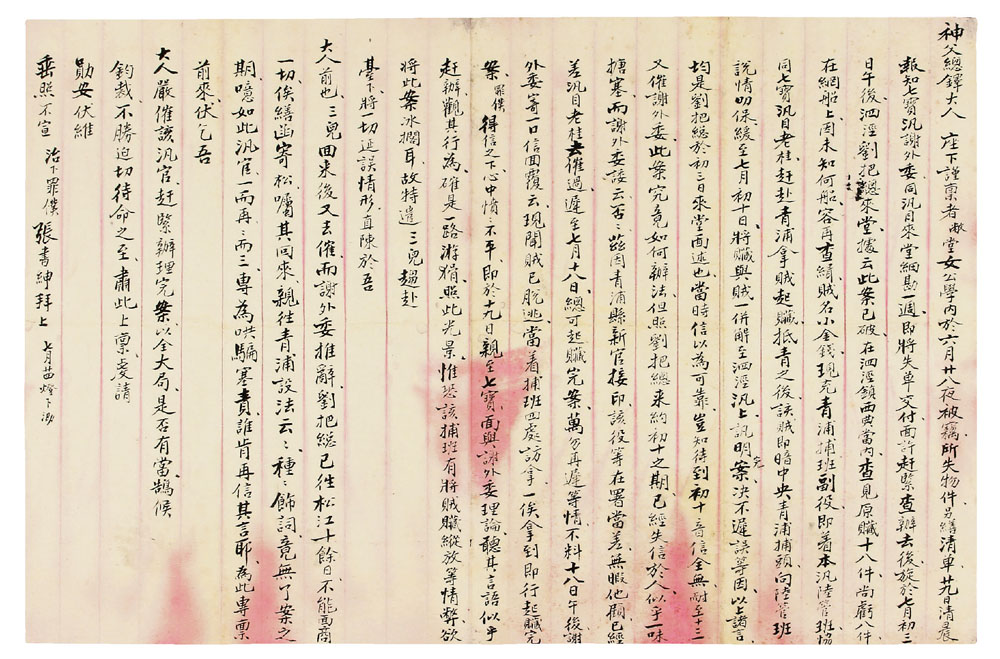 神父總鐸大人　座下謹稟者敝堂女公學內於六月廿八夜被竊所失物件另繕清單廿九日清晨
報知七寶汛謝外委同汛目來堂細勘一週即將失單交付面許赶緊查辦去後旋於七月初三
日午後泗涇劉把總來堂據云此案已破在泗涇鎮西典當內查見原贓十八件尚虧八件
在網船上因未知何船容再查緝賊名小金錢現充青浦捕班副役即着本汛陸管班協
同七寶汛目老桂赶赴青浦拿賊起贓抵青之後該賊即暗中央青浦捕頭向陸管班
說情叨保緩至七月初十日將贓與賊一併解至泗涇汛上訊明完案決不遲誤等因以上諸言
均是劉把總於初三日來堂面述也當時信以為可靠豈知待到初十音信全無耐至十三
又催謝外委此案究竟如何辦法但照劉把總來約初十之期已經失信於人似乎一味
搪塞而謝外委談云否否茲因青浦縣新官接印該役等在署當差無暇他顧已經
差汛目老桂去催過遲至七月十八日總可起贓完案萬勿再遲等情不料十八日午後謝
外委寄一口信回覆云現聞賊已脫逃當着捕班四處訪拿一俟拿到即行起贓完
案罪僕得信之下心中憤憤不平即於十九日親至七寶面與謝外委理論聽其言語似乎
赶辦觀其行為確是一路游猾照此光景惟恐該捕班有將賊贓縱放等情弊欲
將此案冰擱耳故特遣三兒趨赴
臺下將一切延誤情形直陳於吾
大人前也三兒回來後又去催而謝外委推辭劉把總已往松江十餘日不能面商
一切俟繕函寄松囑其回來親往青浦設法云云種種飾詞竟無了案之
期噫如此汛官一而再再而三專為哄騙塞責誰肯再信其言耶為此專稟
前來伏乞吾
大人嚴催該汛官赶緊辦理完案以全大局是否有當鵠候
鈞裁不勝迫切待命之至肅此上稟虔請
勛安伏維
垂照不宣　治下罪僕　張書紳拜上　七月廿燈下泐